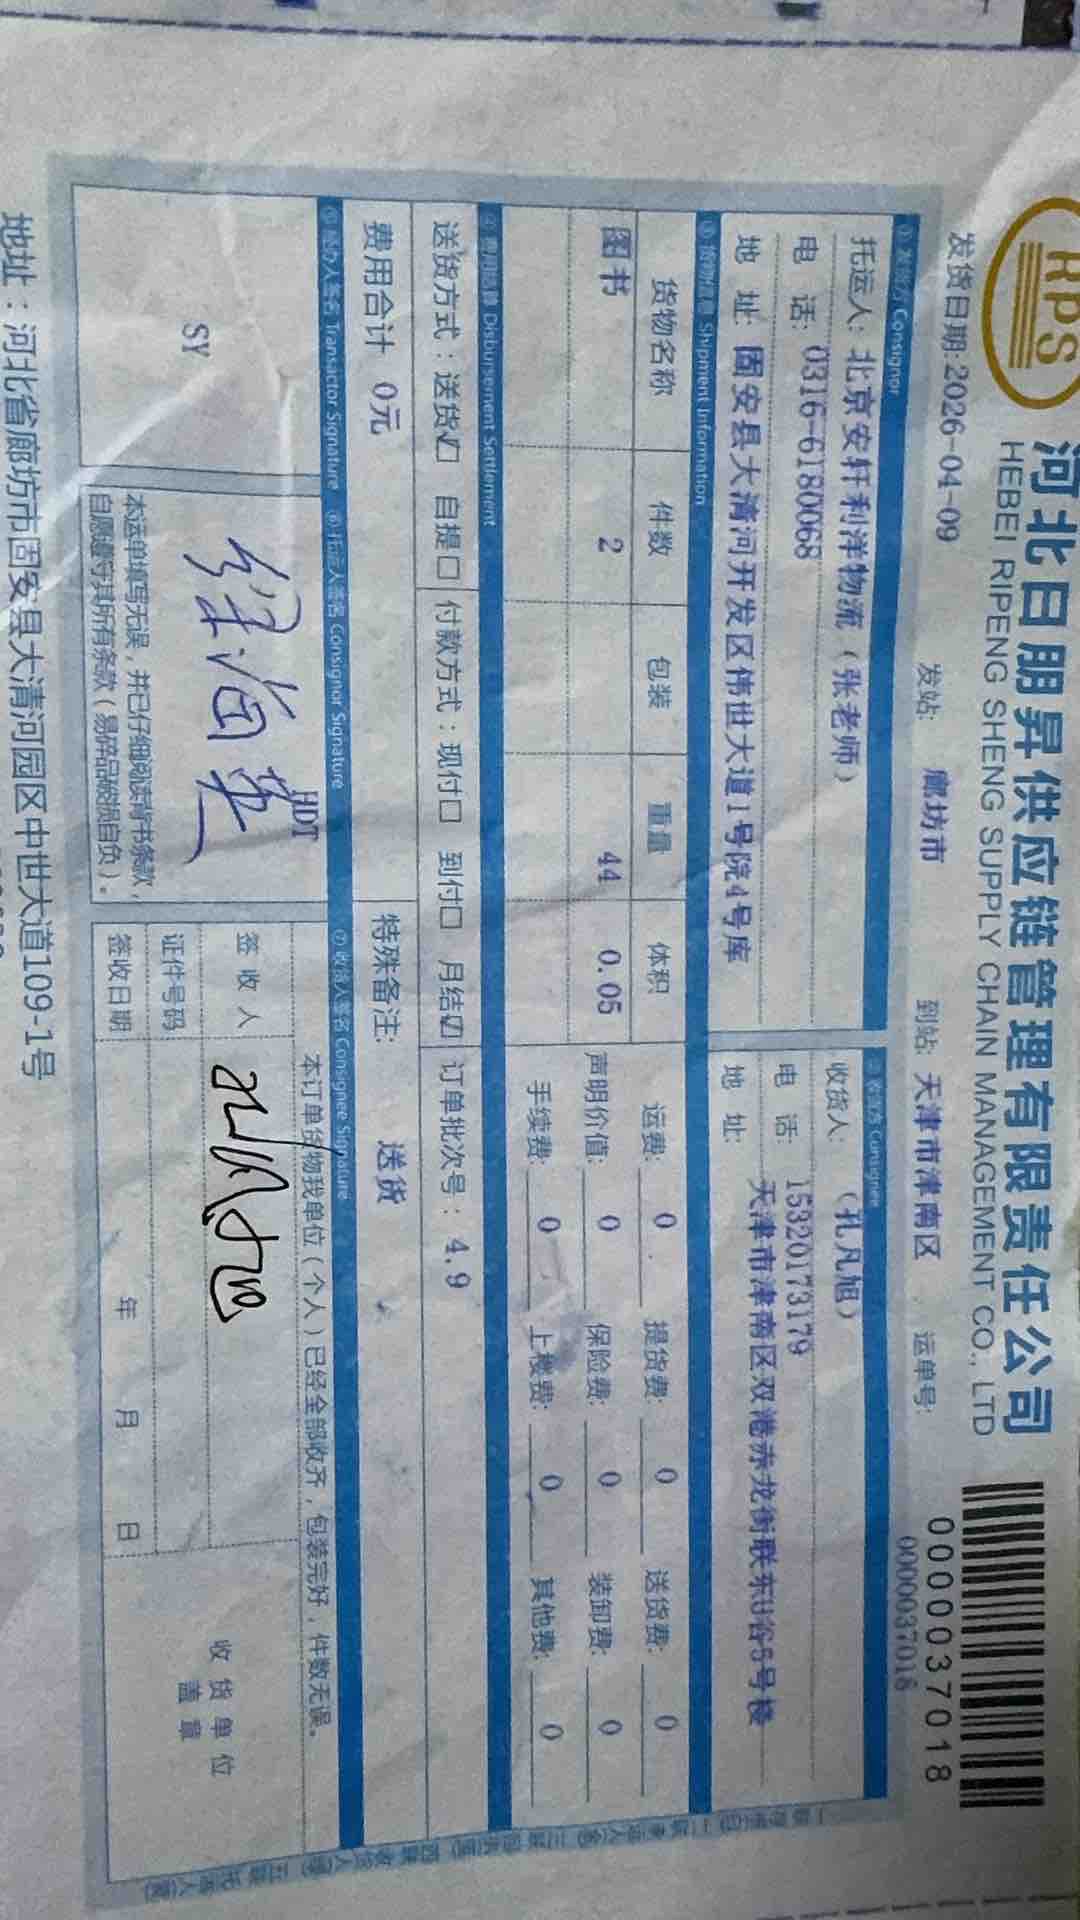 RPS
河北日朋昇供应链管理有限责任公司
HEBEI RIPENG SHENG SUPPLY CHAIN MANAGEMENT CO., LTD
0000037018
0000037018
发货日期:2026-04-09 发站: 廊坊市 到站: 天津市津南区 运单号:
① 发货方 Consignor
托运人: 北京安轩利洋物流（张老师）
电 话: 0316-6180068
地 址: 固安县大清河开发区伟世大道1号院4号库
② 收货方 Consignee
收货人: （孔凡旭）
电 话: 15320173179
地 址: 天津市津南区双港赤龙街联东U谷5号楼
③ 货物信息 Shipment Information
货物名称 件数 包装 重量 体积
图书 2 44 0.05
运费: 0 提货费: 0 送货费: 0
声明价值: 0 保险费: 0 装卸费: 0
手续费: 0 上楼费: 0 其他费: 0
④ 费用结算 Disbursement Settlement
送货方式：送货☑ 自提☐ 付款方式：现付☐ 到付☐ 月结☑ 订单批次号：4.9
费用合计 0元 特殊备注: 送货
⑤ 经办人签名 Transactor Signature ⑥ 托运人签名 Consignor Signature ⑦ 收货人签名 Consignee Signature
SY
HDT
本运单填写无误，并已仔细阅读背书条款，
自愿遵守其所有条款（易碎品破损自负）。
本订单货物我单位（个人）已经全部收齐，包装完好，件数无误。
签 收 人 孔凡旭
证件号码
签收日期 年 月 日
收货单位
盖 章
地址：河北省廊坊市固安县大清河园区中世大道109-1号